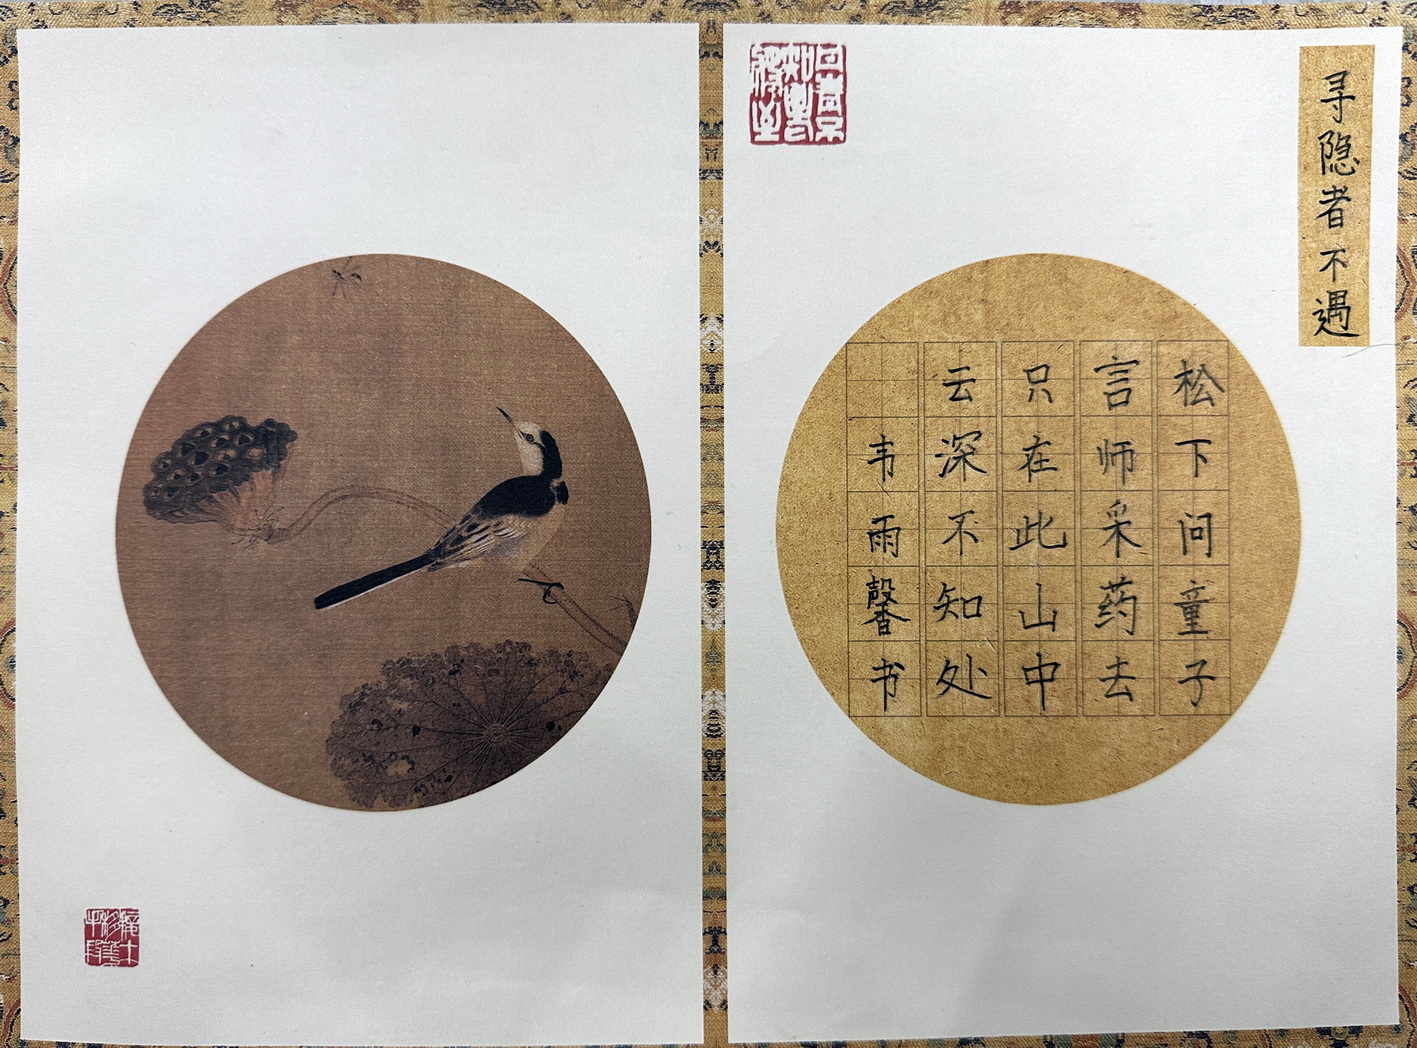 寻隐者不遇
松下问童子
言师采药去
只在此山中
云深不知处
韦雨馨书